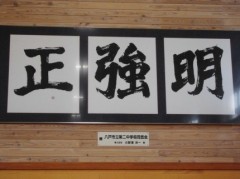 明強正
八戸市立第二中学校同窓会